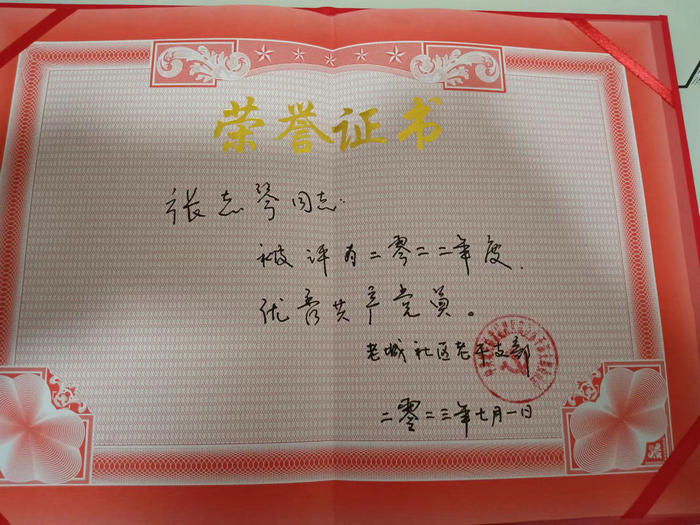 荣誉证书
张志琴同志:
被评为二零二二年度
优秀共产党员。
老城社区老年支部
二零二三年七月一日